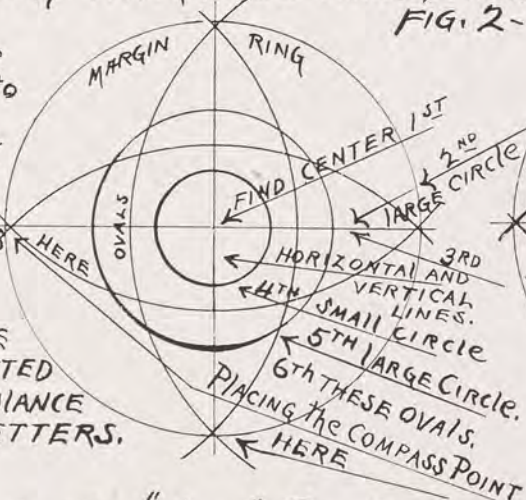 FIG. 2-
MARGIN RING
FIND CENTER 1ST
2ND
LARGE CIRCLE
OVALS
HERE
3RD
HORIZONTAL AND
VERTICAL
LINES.
4TH SMALL CIRCLE
5TH LARGE CIRCLE.
6Th THESE OVALS.
PLACING The COMPASS POINT
HERE
TED
IANCE
TTERS.